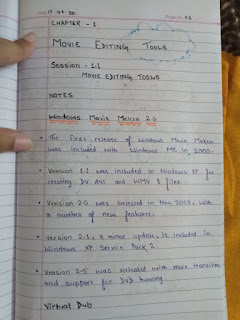 CHAPTER - 1
MOVIE EDITING TOOLS
Session - 1.1
MOVIE EDITING TOOLS
NOTES
Windows Movie Maker 2.6
• The first release of windows Movie Maker
was included with Windows ME in 2000.
• Version 1.1 was included in Windows XP for
creating DV AVI and WMV 8 files.
• Version 2.0 was released in Nov. 2002, with
a number of new features.
• Version 2.1, a minor update, is included in
Windows XP Service Pack 2.
• Version 2.5 was released with more transition
and support for DVD burning.
Virtual Dub